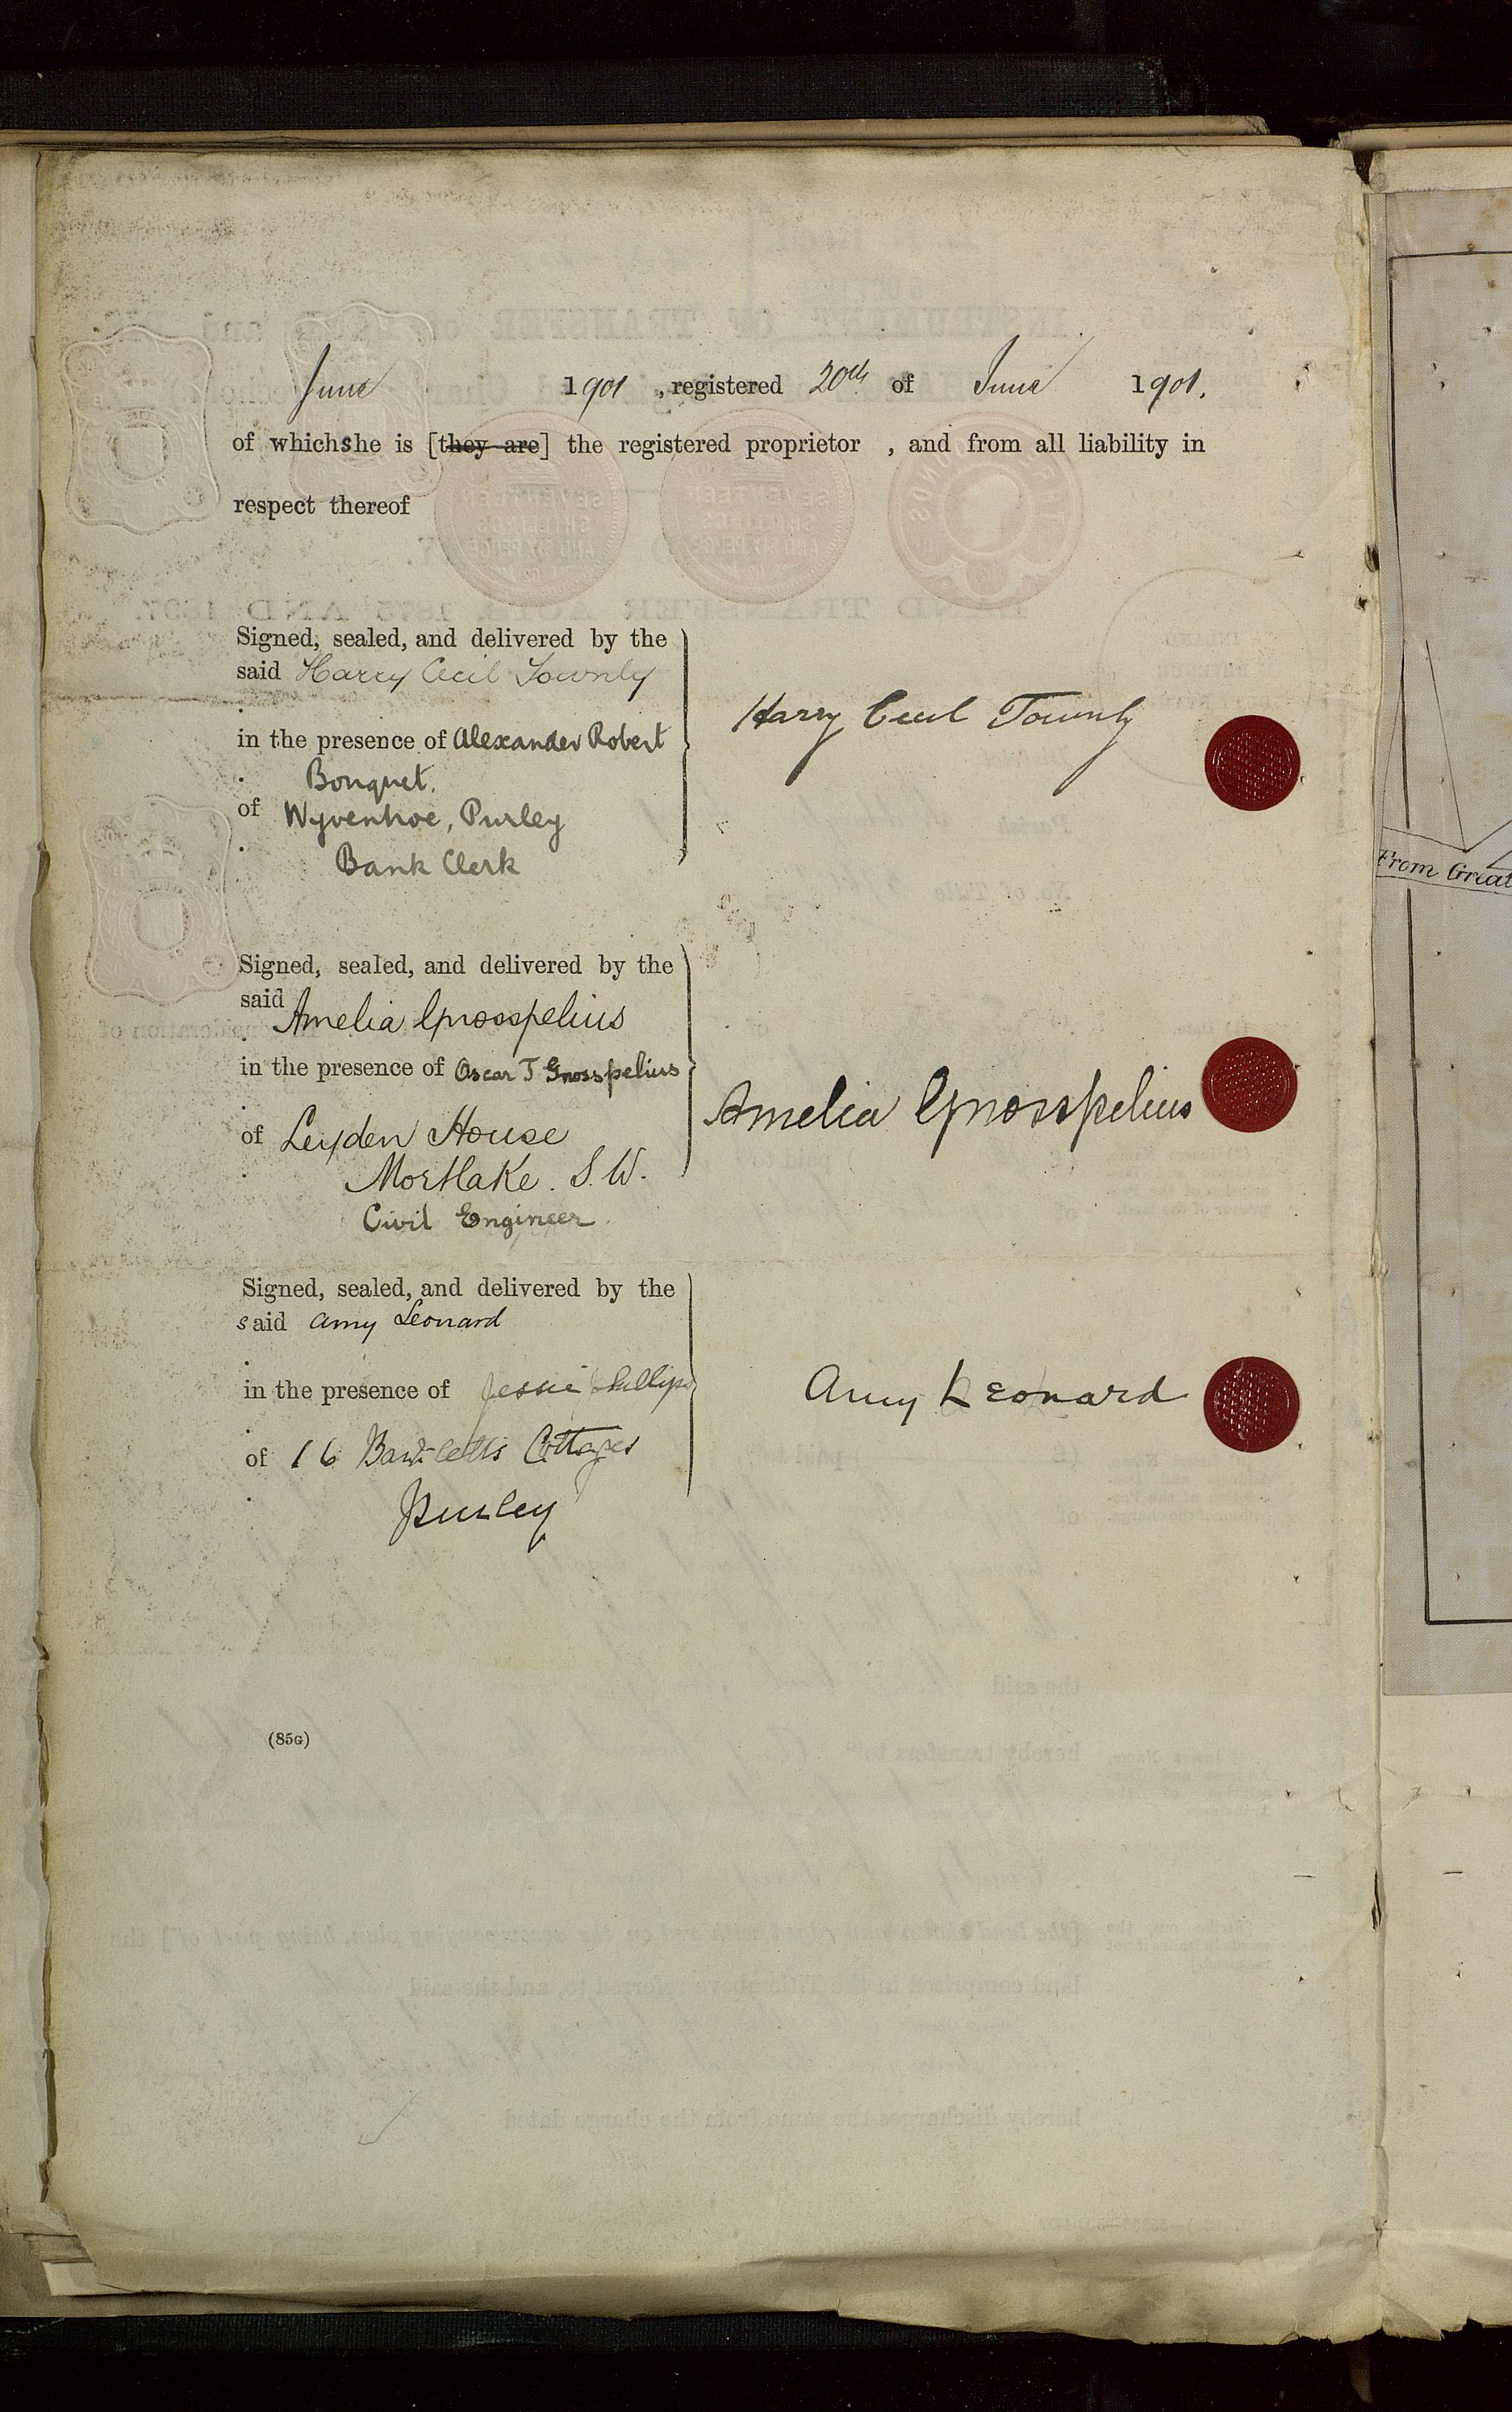 June 1901, registered 20th of June 1901.
of which she is [they are] the registered proprietor , and from all liability in
respect thereof
Signed, sealed, and delivered by the
said Harry Cecil Townly
in the presence of Alexander Robert
Bouquet.
of Wyvenhoe, Purley
Bank Clerk
Harry Cecil Townly
Signed, sealed, and delivered by the
said Amelia Gnosspelius
in the presence of Oscar T Gnosspelius
of Leyden House
Mortlake. S.W.
Civil Engineer
Amelia Gnosspelius
Signed, sealed, and delivered by the
said Amy Leonard
in the presence of Jessie Phillips
of 16 Bartletts Cottages
Purley
Amy Leonard
(85G)
From Great